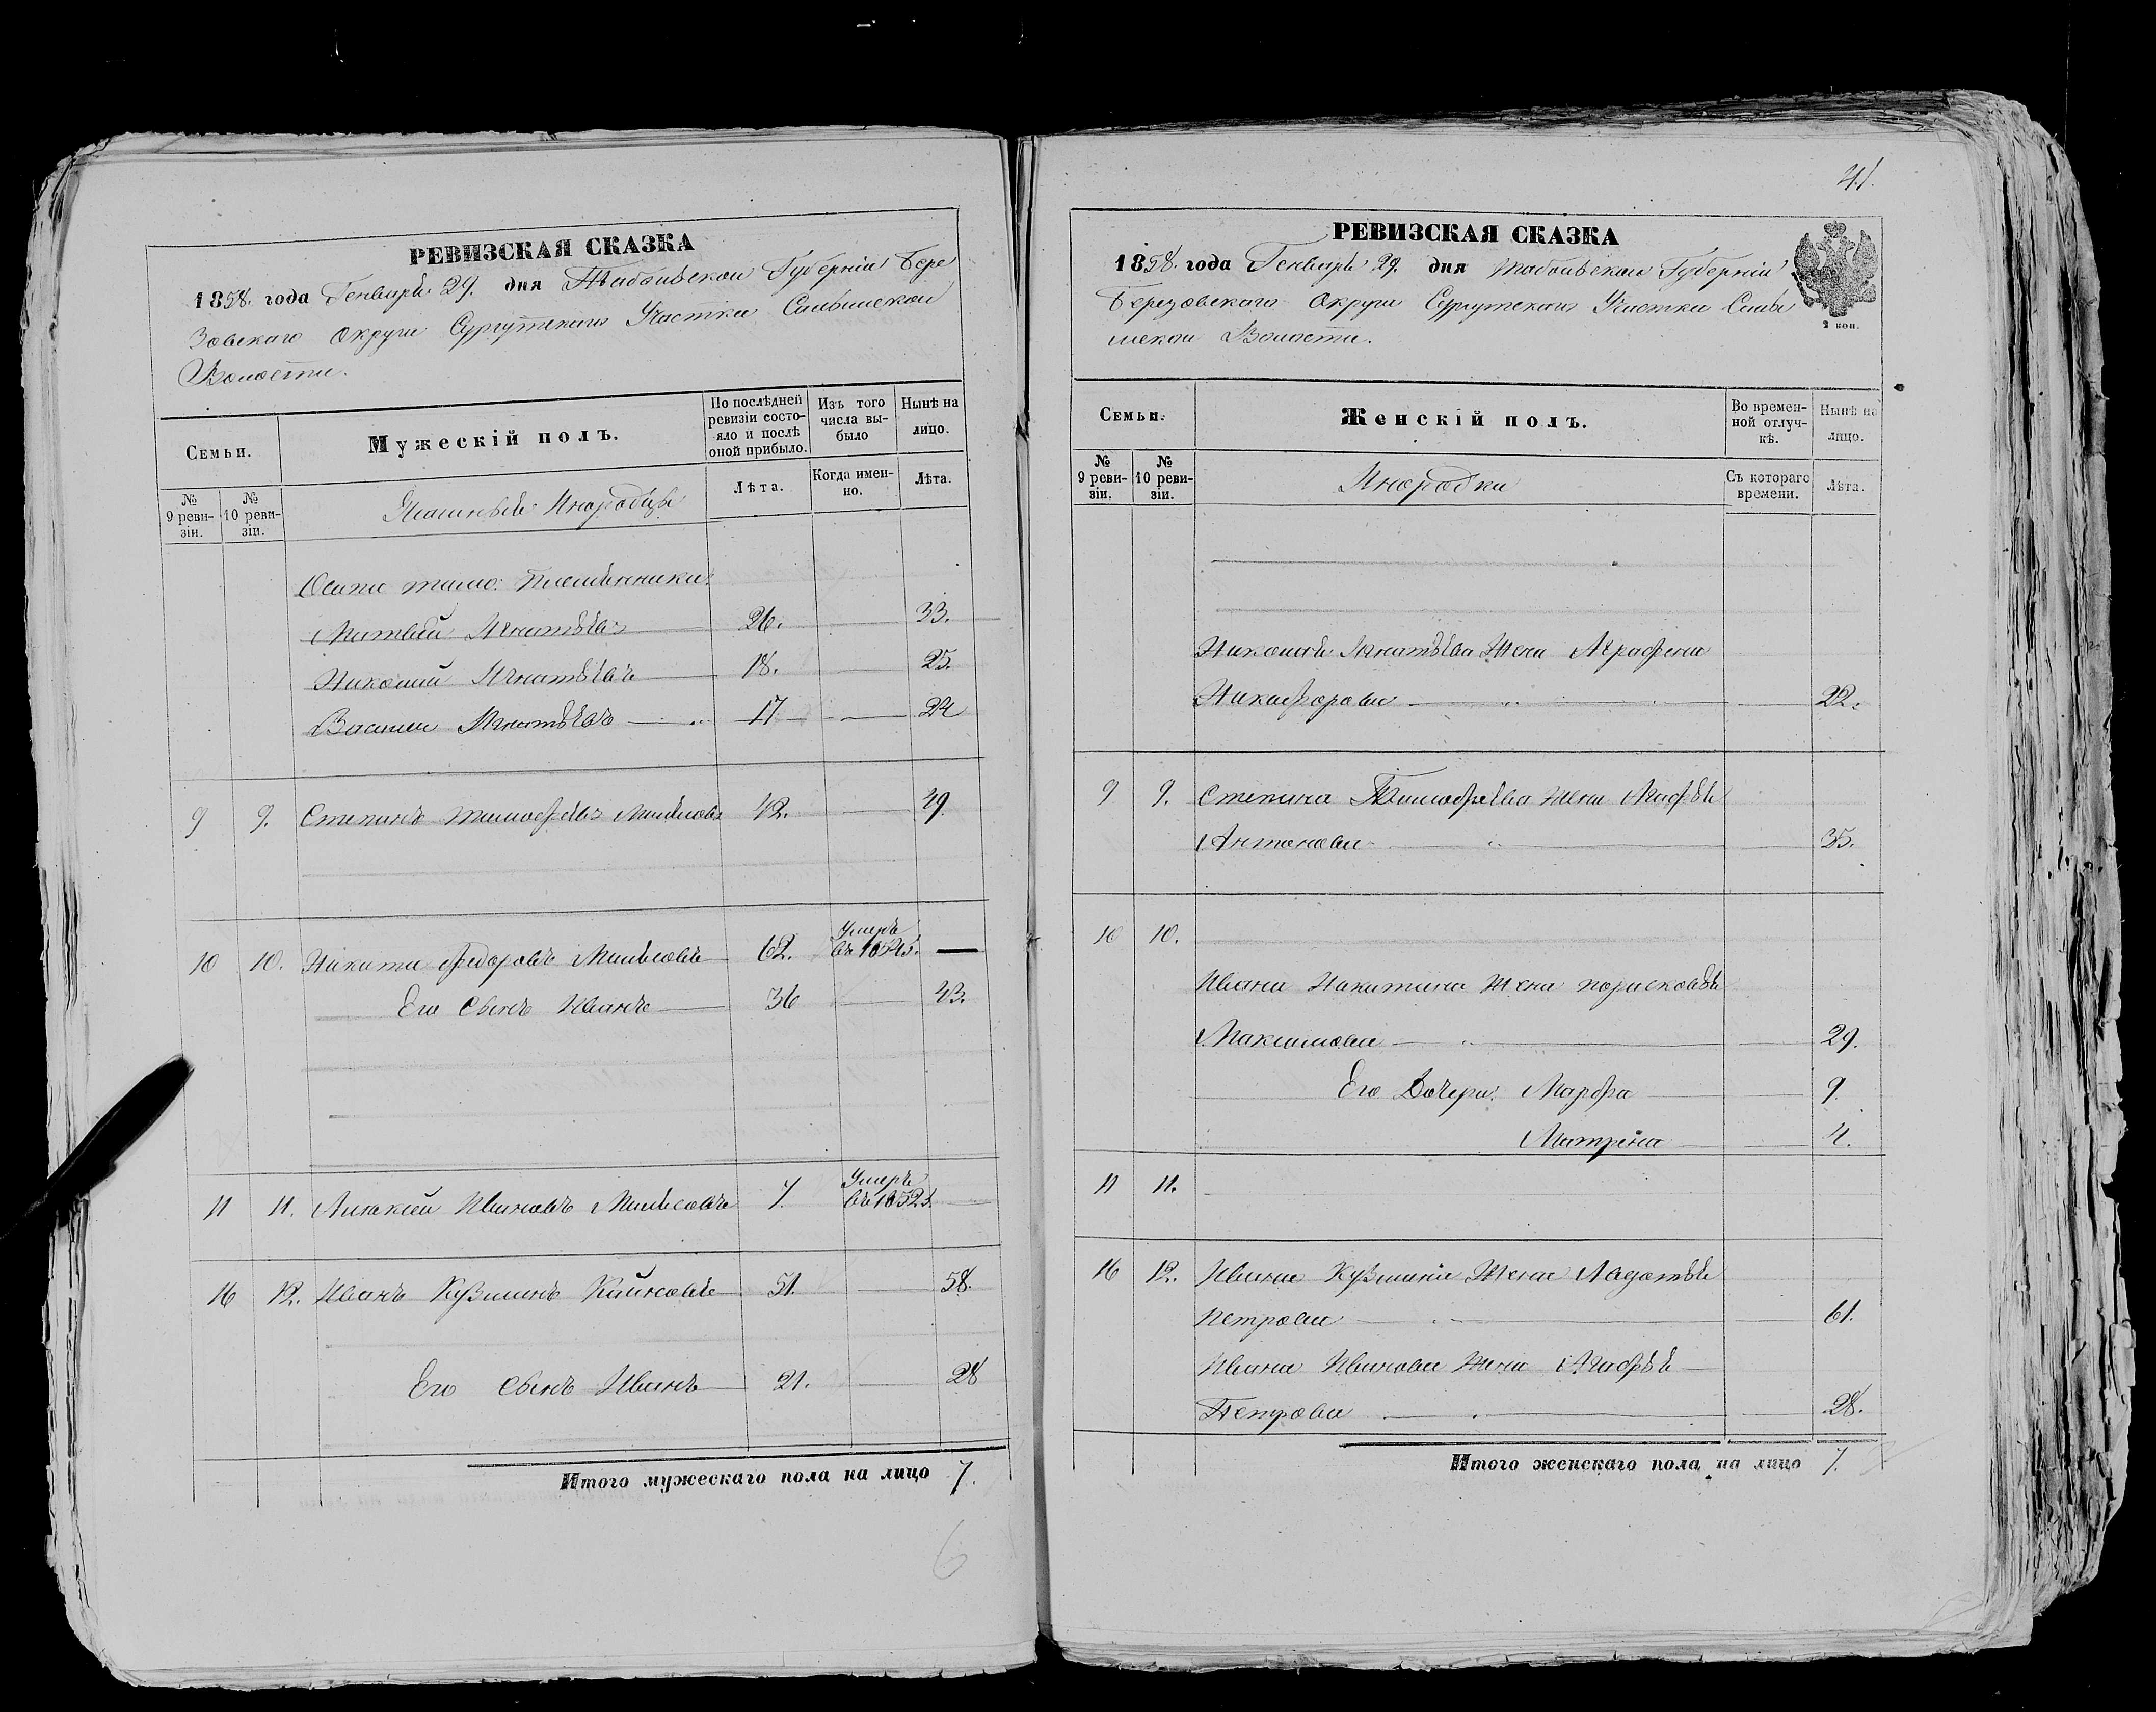 РЕВИЗСКАЯ СКАЗКА
1858. года Генваря 29. дня Тобольской Губерніи Бере
зовскаго Округа Сургутскаго Участка
Волости.
Семьи.
Мужескій полъ.
По послѣдней ревизіи состо-
яло и послѣ оной прибыло.
Изъ того числа вы-
было
Нынѣ на лицо.
№ 9 реви-
зіи.
№ 10 реви-
зіи.
Инородцы
Лѣта.
Когда имен-
но.
Лѣта.
Племянники
Матвей Игнатьевъ 26. 33.
Николай Игнатьевъ 18. 25.
Василей Игнатьевъ 17 24
9 9. Степанъ Тимофеевъ 42. 49
10 10. Никита Федоровъ 62. Умеръ въ
Его Сынъ Иванъ 36 43.
11 11. Алексей Ивановъ 7. Умеръ въ 1852
16 12. Иванъ Кузминъ 51. 58.
Его Сынъ Иванъ 21. 28
Итого мужескаго пола на лицо 7.
6
41.
РЕВИЗСКАЯ СКАЗКА
1858. года Генваря 29. дня Тобольской Губерніи
Березовскаго Округа Сургутскаго Участка
Волости.
2 коп.
Семьи.
Женскій полъ.
Во времен-
ной отлуч-
кѣ.
Нынѣ на лицо.
№ 9 реви-
зіи.
№ 10 реви-
зіи.
Инородки
Съ котораго времени.
Лѣта.
Николая Игнатьева Жена Аграфена
Никифорова 22.
9 9. Степана Тимофеева Жена
Антонова 35.
10 10.
Ивана Никитина Жена
Максимова 29.
Его Дочери: Марфа 9.
Матрена 4.
11 11.
16 12. Ивана Кузмина Жена
Петрова 61.
Ивана Иванова Жена
Петрова 28.
Итого женскаго пола на лицо 7.